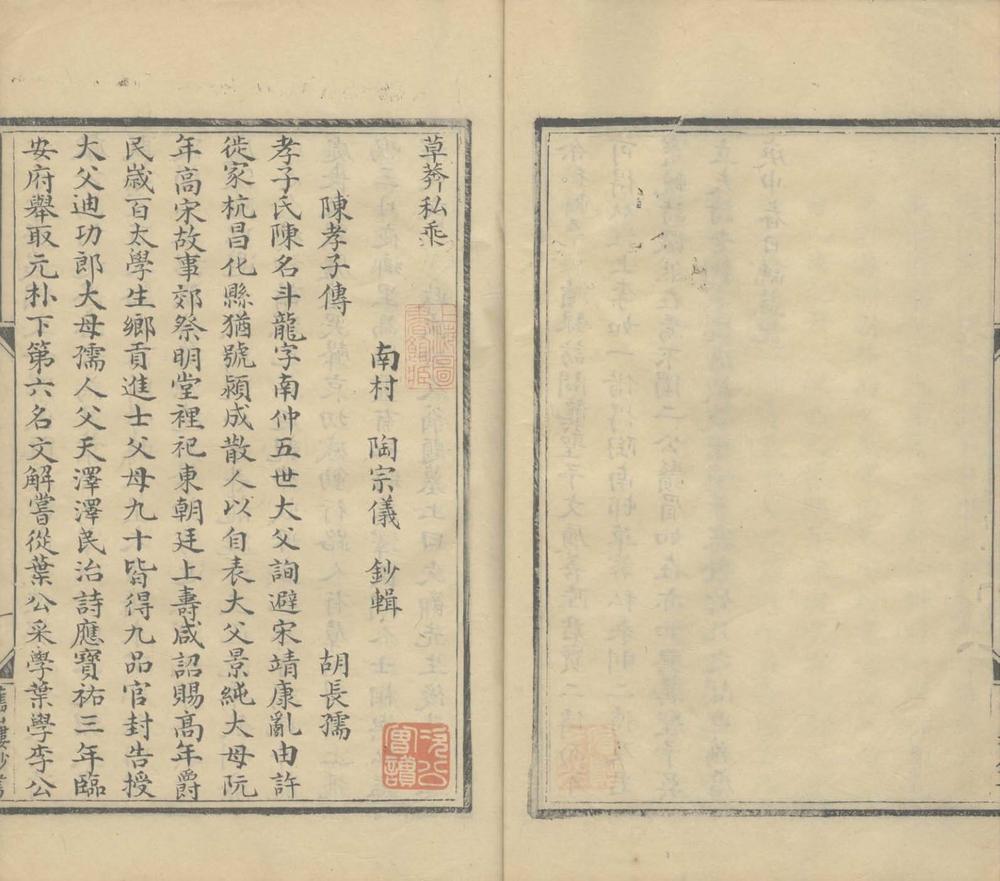 草莽私乘
南村 陶宗儀 鈔輯
陳孝子傳 胡長孺
孝子氏陳名斗龍字南仲五世大父詢避宋靖康亂由許
徙家杭昌化縣猶號潁成散人以自表大父景純大母阮
年高宋故事郊祭明堂裡祀東朝廷上壽咸詔賜高年爵
民歲百太學生鄉貢進士父母九十皆得九品官封告授
大父迪功郎大母孺人父天澤澤民治詩應寶祐三年臨
安府舉取元朴下第六名文解嘗從葉公采學葉學李公